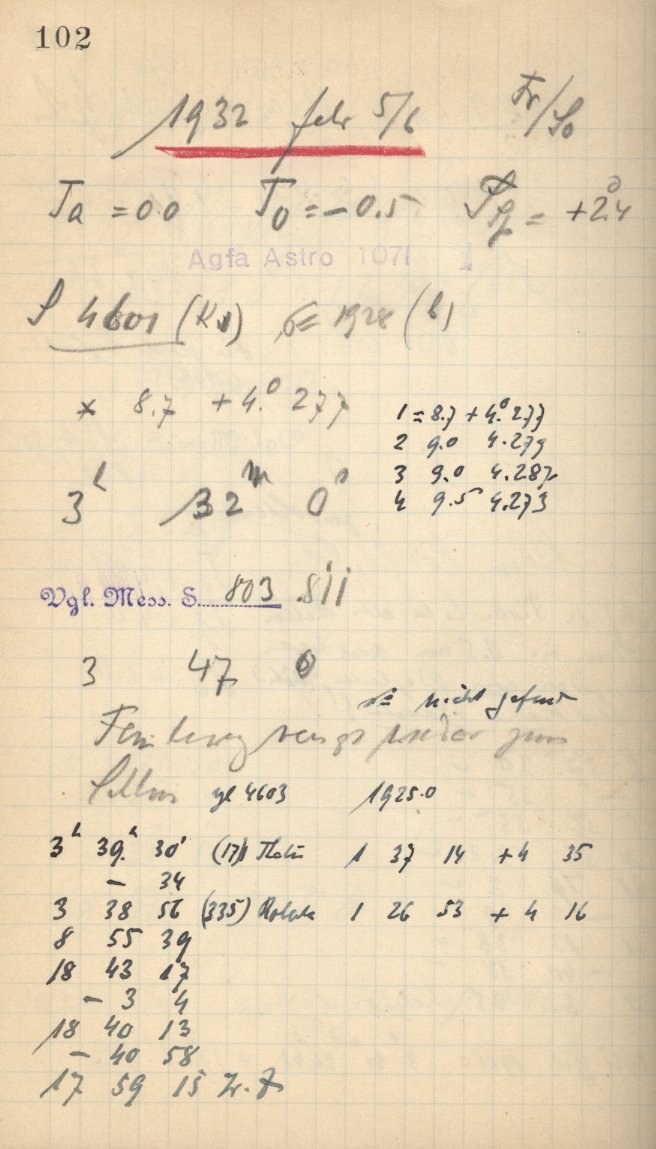 102
1932 febr 5/6 Fr/So
Ta = 0.0 To = -0.5 = +2.4
Agfa Astro 1071
S 4601 (Ks) = 1928 (b)
x 8.7 +4.° 277
1 = 8.7 +4.° 277
2 9.0 4.279
3 9.0 4.287
4 9.5 4.273
3h 32m 0s
Vgl. Mess. S. 803 .811
3 47 0
nicht gefund
zum
vgl 4603 1925.0
3h 39. 30s (171) 1 37 14 +4 35
- 34
3 38 56 (335) 1 26 53 + 4 16
8 55 39
18 43 17
- 3 4
18 40 13
- 40 58
17 59 15 Z.Z